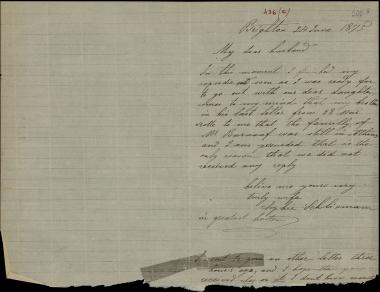 436 (c)
Brighton 24 June 1875
My dear husband
In this moment I
as I was ready for
to go out with our dear daughter,
comes to my mind that my brother
in his last letter from 28 Mai
wrote to me that the familly of
Mr Burnouf was still in Athens
and I am persuaded that is the
only reason that we did not
received any reply
believe me yours very
truly wife
Sophie Schliemann
in greatest haste
I sent to you an other letter three
hours ago, and I hope that you